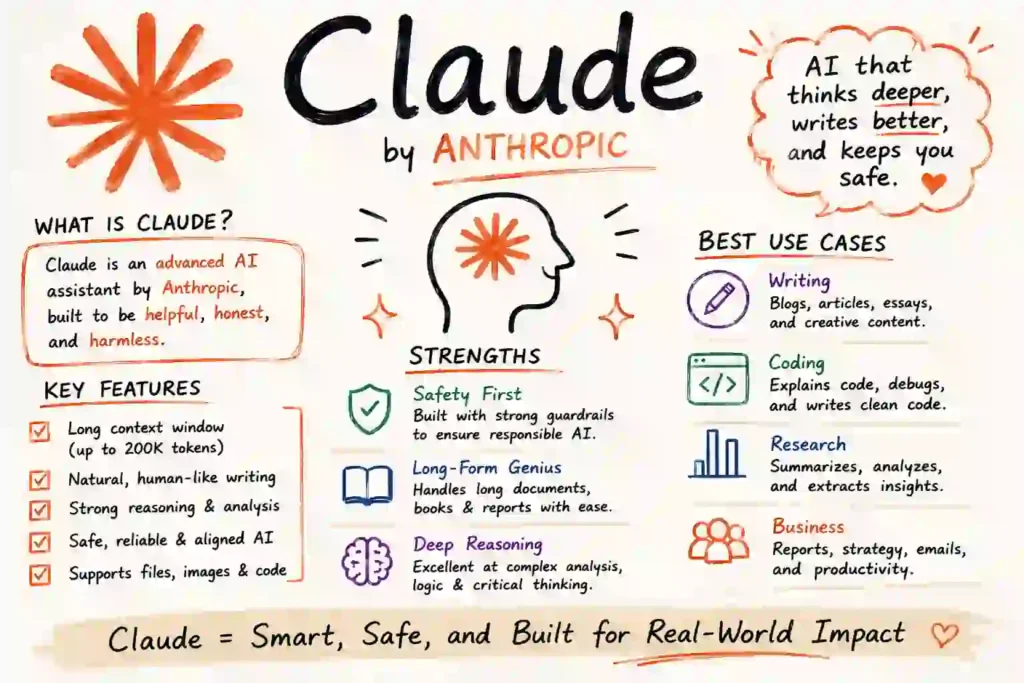 Claude
by ANTHROPIC
AI that
thinks deeper,
writes better,
and keeps you
safe.
WHAT IS CLAUDE?
Claude is an advanced AI
assistant by Anthropic,
built to be helpful, honest,
and harmless.
KEY FEATURES
Long context window
(up to 200K tokens)
Natural, human-like writing
Strong reasoning & analysis
Safe, reliable & aligned AI
Supports files, images & code
STRENGTHS
Safety First
Built with strong guardrails
to ensure responsible AI.
Long-Form Genius
Handles long documents,
books & reports with ease.
Deep Reasoning
Excellent at complex analysis,
logic & critical thinking.
BEST USE CASES
Writing
Blogs, articles, essays,
and creative content.
</>
Coding
Explains code, debugs,
and writes clean code.
Research
Summarizes, analyzes,
and extracts insights.
Business
Reports, strategy, emails,
and productivity.
Claude = Smart, Safe, and Built for Real-World Impact